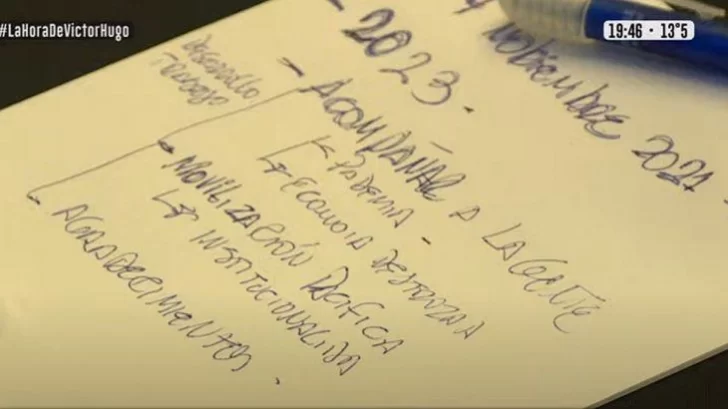 #LaHoraDeVictorHugo
19:46 - 13°5
NOVIEMBRE 2021-
- 2023.
Desarrollo
Trabajo
- ACOMPAÑAR A LA GENTE
↳ PADEMIA -
↳ ECONOIA DESTROZADA
- MOVILIZACIÓN PACIFICA
↳ INSTITUCIONALIDA
- AGRADECIMIENTOS.